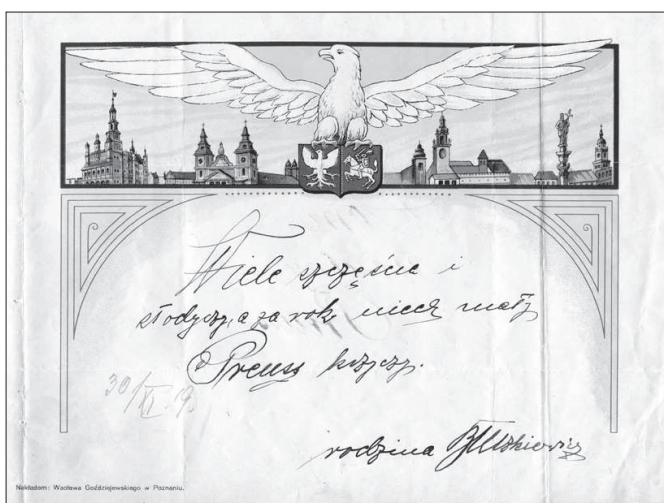 Wiele szczęścia i
słodyczy, a za rok niech mały
Preuss krzyczy.
30/XI.19.
rodzina
Nakładem: Wacława Goździejewskiego w Poznaniu.